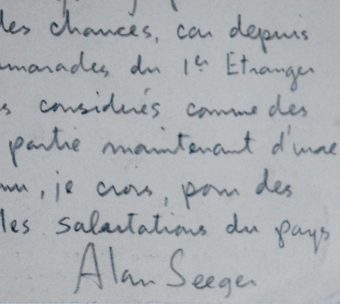 les chances, car depuis
amarades du 1er Etranger
s considerés comme des
partie maintenant d'une
nnu, je crois, pour des
les salutations du pays
Alan Seeger